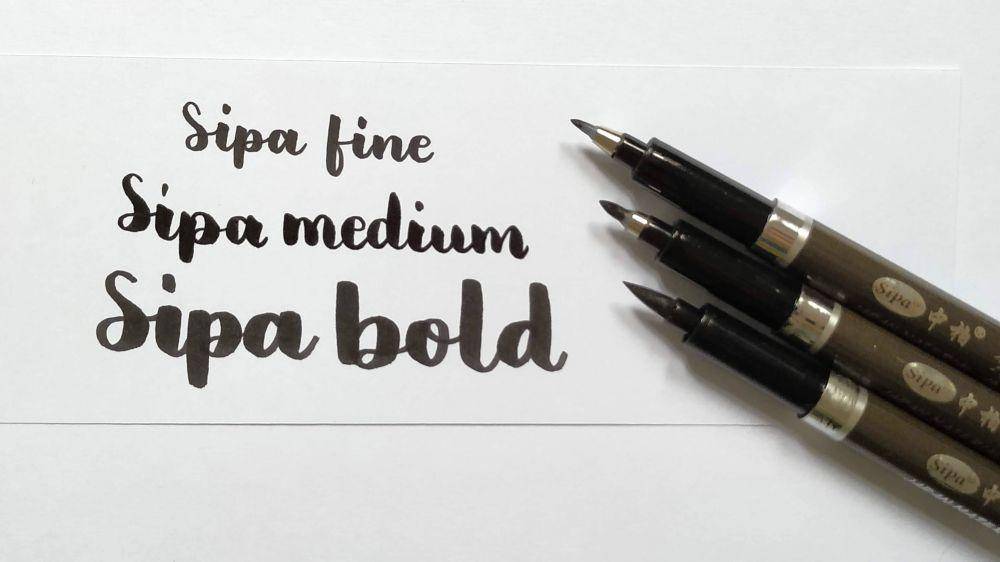 Sipa fine
Sipa medium
Sipa bold
Sipa 中柏
Sipa 中柏
Sipa 中